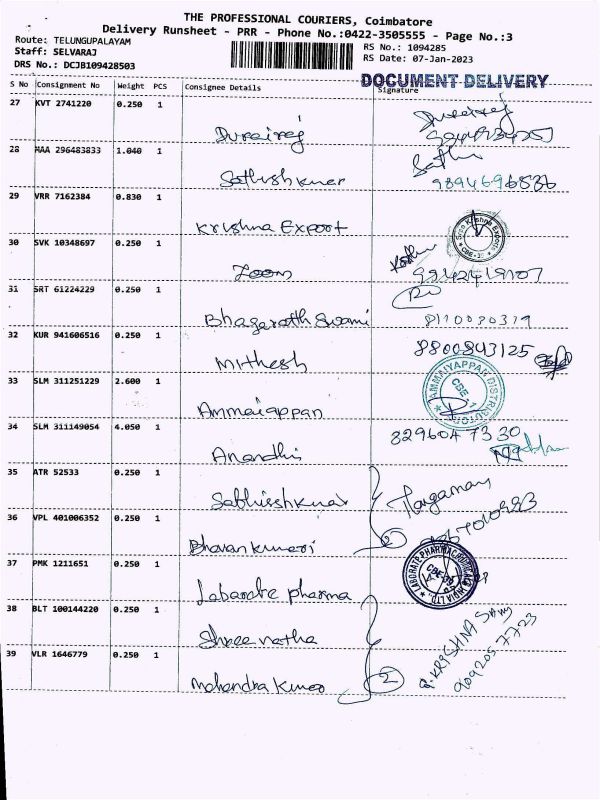 THE PROFESSIONAL COURIERS, Coimbatore
Delivery Runsheet - PRR - Phone No.:0422-3505555 - Page No.:3
Route: TELUNGUPALAYAM
Staff: SELVARAJ
DRS No.: DCJB109428503
RS No.: 1094285
RS Date: 07-Jan-2023
DOCUMENT DELIVERY
S No Consignment No Weight PCS Consignee Details Signature
27 KVT 2741220 0.250 1
Durairaj
28 MAA 296483833 1.040 1
Sathishkumar
9894696536
29 VRR 7162384 0.830 1
Krishna Export
Sree Krishna Exports
CBE-
30 SVK 10348697 0.250 1
Zoom
31 SRT 61224229 0.250 1
Bhagarath Swami
8110030319
32 KUR 941606516 0.250 1
Mithesh
8800843125
33 SLM 311251229 2.600 1
Ammaiappan
AMMAIYAPPAN DISTRIBUTOR
CBE
34 SLM 311149054 4.050 1
Anandhi
8296047330
35 ATR 52533 0.250 1
Sabhisshkumar
36 VPL 401006352 0.250 1
Bhavankumari
2
37 PMK 1211651 0.250 1
Labarate pharma
LABORATE PHARMACEUTICALS INDIA LTD.
CBE-39
38 BLT 100144220 0.250 1
Shree natha
39 VLR 1646779 0.250 1
Mahendra Kumar
2
G.KRISHNA SAMY
909205 7723